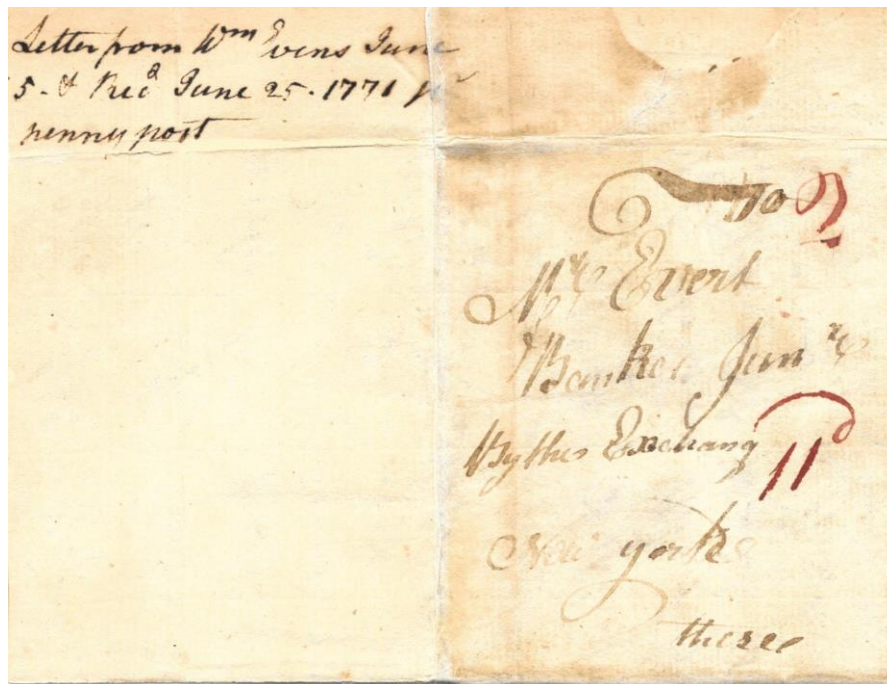 Letter from Wm Evens June
5. & Recd June 25. 1771 pr
penny post
To
Mr Evert
Banker Junr
By the Exchang
11d
New yorke
these